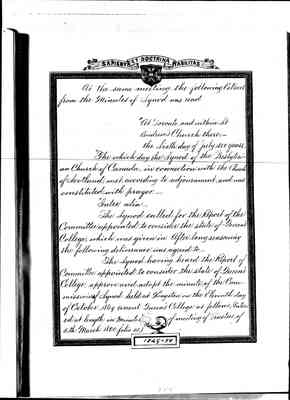 SAPIENTIA ET DOCTRINA STABILITAS
At the same meeting the following Extract
from the Minutes of Synod was read
At Toronto and within St
Andrew's Church there
the sixth day of July six years
The which day the Synod of the Presbyteri-
an Church of Canada in connection with the Church
of Scotland met according to adjournment and was
constituted with prayer
Inter alia
The Synod called for the Report of the
Committee appointed to consider the state of Queens
College, which was given in After long reasoning
the following deliverance was agreed to
The Synod having heard the Report of
Committee appointed to consider the state of Queens
College, approve and adopt the minute of the Com-
mission of Synod held at Kingston on the Eleventh day
of October 1869 anent Queens College as follows
ed at length in Minutes of meeting of Trustees of
8th March 1860 folio